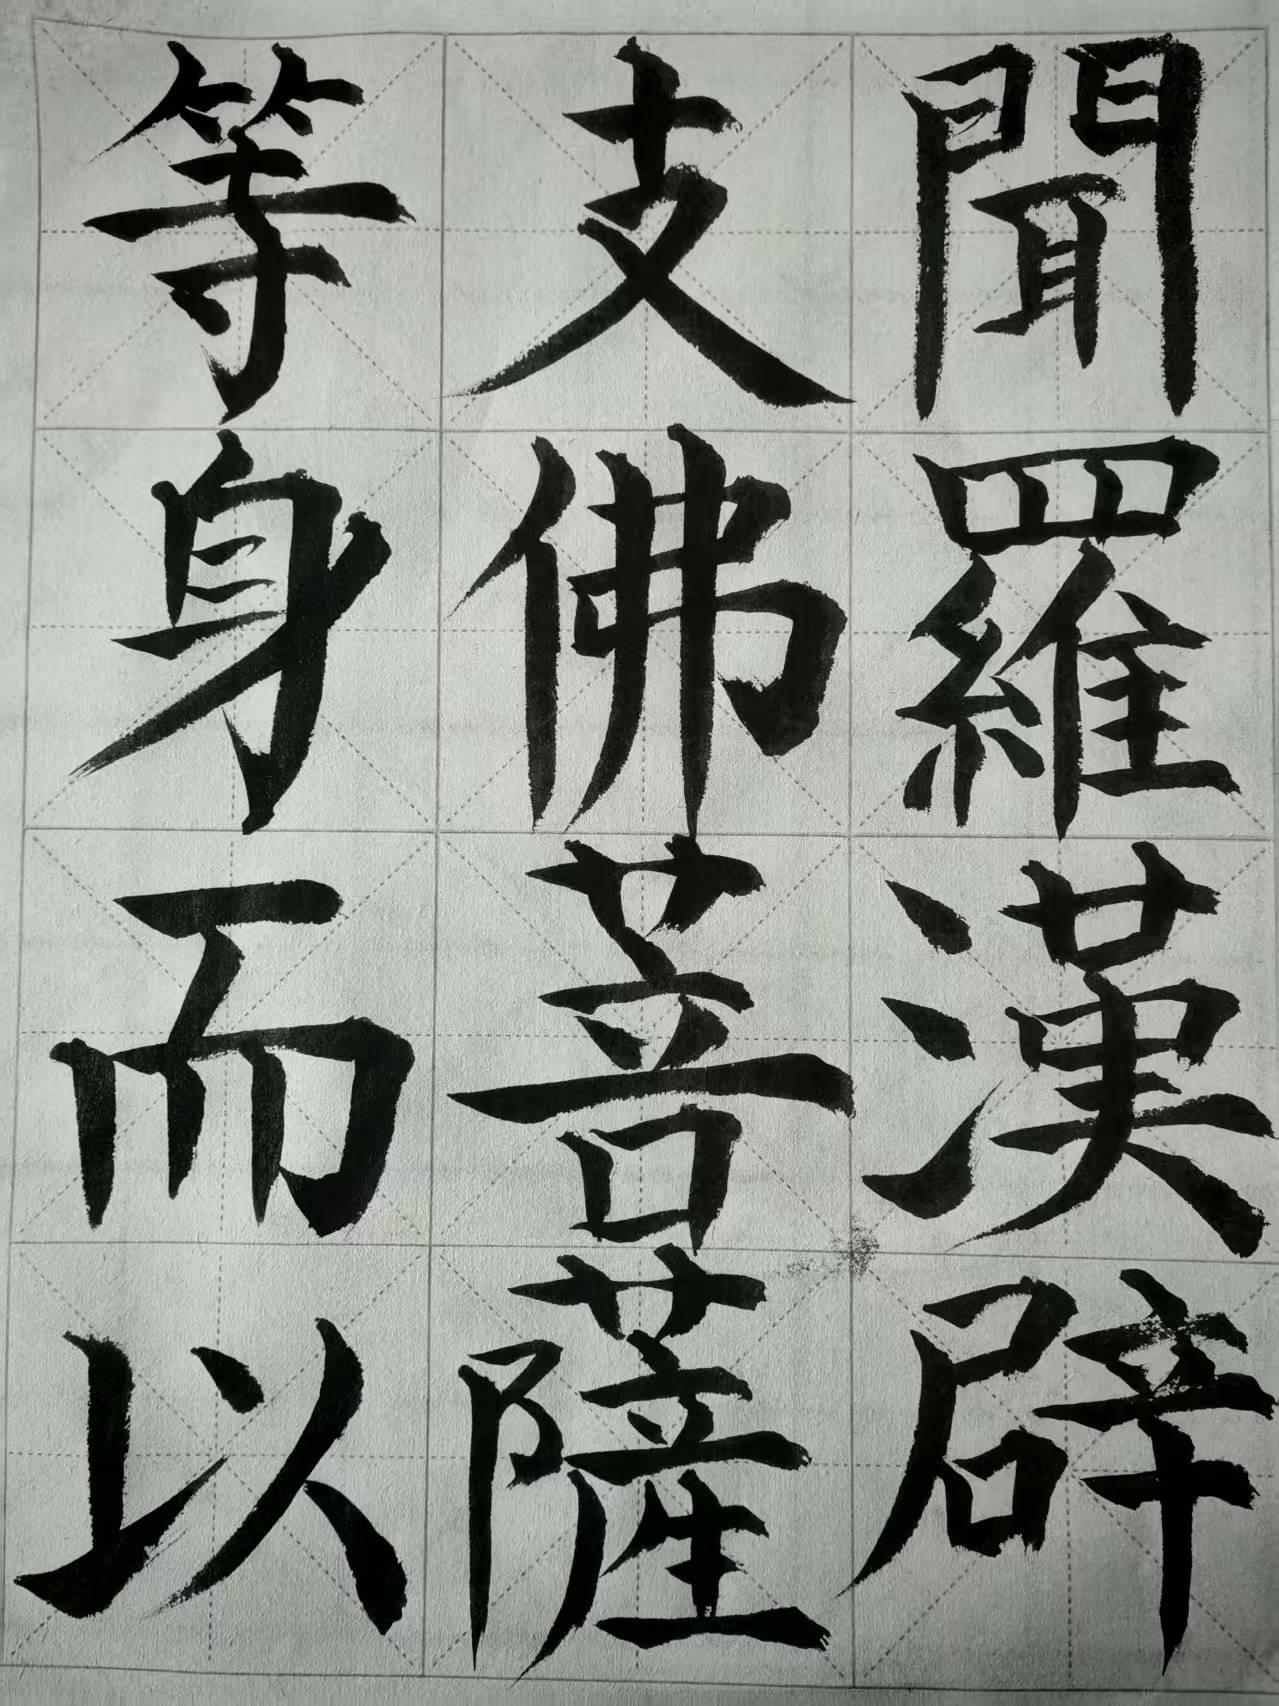 聞羅漢辟
支佛菩薩
等身而以